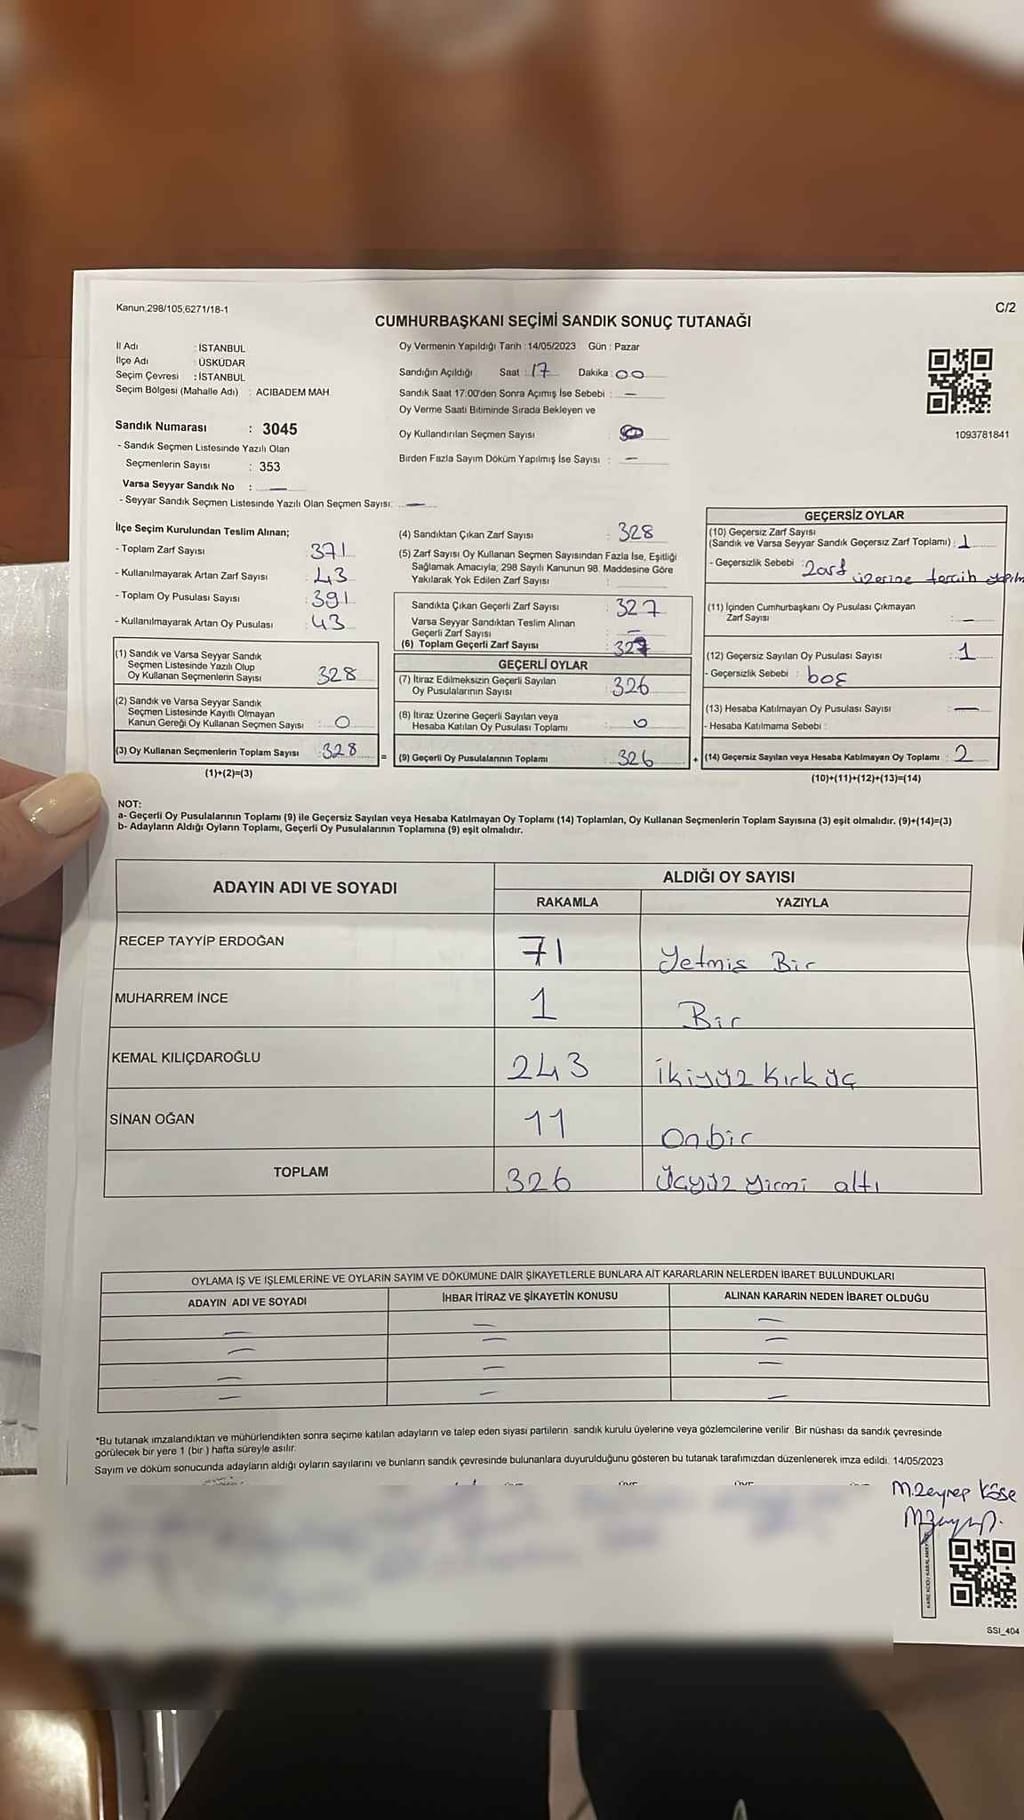 Kanun,298/105,6271/18-1
C/2
CUMHURBAŞKANI SEÇİMİ SANDIK SONUÇ TUTANAĞI
İl Adı : İSTANBUL
İlçe Adı : ÜSKÜDAR
Seçim Çevresi : İSTANBUL
Seçim Bölgesi (Mahalle Adı) : ACIBADEM MAH.
Oy Vermenin Yapıldığı Tarih :14/05/2023 Gün : Pazar
Sandığın Açıldığı Saat : 17 Dakika : 00
Sandık Saat 17:00'den Sonra Açımış İse Sebebi : —
Oy Verme Saati Bitiminde Sırada Bekleyen ve
Oy Kullandırılan Seçmen Sayısı :
Birden Fazla Sayım Döküm Yapılmış İse Sayısı : —
1093781841
Sandık Numarası : 3045
- Sandık Seçmen Listesinde Yazılı Olan
Seçmenlerin Sayısı : 353
Varsa Seyyar Sandık No : —
- Seyyar Sandık Seçmen Listesinde Yazılı Olan Seçmen Sayısı: —
İlçe Seçim Kurulundan Teslim Alınan;
- Toplam Zarf Sayısı : 371
- Kullanılmayarak Artan Zarf Sayısı : 43
- Toplam Oy Pusulası Sayısı : 391
- Kullanılmayarak Artan Oy Pusulası : 43
(1) Sandık ve Varsa Seyyar Sandık
Seçmen Listesinde Yazılı Olup
Oy Kullanan Seçmenlerin Sayısı : 328
(2) Sandık ve Varsa Seyyar Sandık
Seçmen Listesinde Kayıtlı Olmayan
Kanun Gereği Oy Kullanan Seçmen Sayısı : 0
(3) Oy Kullanan Seçmenlerin Toplam Sayısı : 328
(1)+(2)=(3)
(4) Sandıktan Çıkan Zarf Sayısı : 328
(5) Zarf Sayısı Oy Kullanan Seçmen Sayısından Fazla İse, Eşitliği
Sağlamak Amacıyla; 298 Sayılı Kanunun 98. Maddesine Göre
Yakılarak Yok Edilen Zarf Sayısı :
Sandıkta Çıkan Geçerli Zarf Sayısı : 327
Varsa Seyyar Sandıktan Teslim Alınan
Geçerli Zarf Sayısı : —
(6) Toplam Geçerli Zarf Sayısı : 327
GEÇERLİ OYLAR
(7) İtiraz Edilmeksizin Geçerli Sayılan
Oy Pusulalarının Sayısı : 326
(8) İtiraz Üzerine Geçerli Sayılan veya
Hesaba Katılan Oy Pusulası Toplamı : 0
= (9) Geçerli Oy Pusulalarının Toplamı : 326
GEÇERSİZ OYLAR
(10) Geçersiz Zarf Sayısı
(Sandık ve Varsa Seyyar Sandık Geçersiz Zarf Toplamı) : 1
- Geçersizlik Sebebi : Zarf üzerine tercih
(11) İçinden Cumhurbaşkanı Oy Pusulası Çıkmayan
Zarf Sayısı : —
(12) Geçersiz Sayılan Oy Pusulası Sayısı : 1
- Geçersizlik Sebebi : boş
(13) Hesaba Katılmayan Oy Pusulası Sayısı : —
- Hesaba Katılmama Sebebi :
+ (14) Geçersiz Sayılan veya Hesaba Katılmayan Oy Toplamı : 2
(10)+(11)+(12)+(13)=(14)
NOT:
a- Geçerli Oy Pusulalarının Toplamı (9) ile Geçersiz Sayılan veya Hesaba Katılmayan Oy Toplamı (14) Toplamları, Oy Kullanan Seçmenlerin Toplam Sayısına (3) eşit olmalıdır. (9)+(14)=(3)
b- Adayların Aldığı Oyların Toplamı, Geçerli Oy Pusulalarının Toplamına (9) eşit olmalıdır.
ADAYIN ADI VE SOYADI
ALDIĞI OY SAYISI
RAKAMLA YAZIYLA
RECEP TAYYİP ERDOĞAN 71 Yetmiş Bir
MUHARREM İNCE 1 Bir
KEMAL KILIÇDAROĞLU 243 İkiyüz kırk üç
SİNAN OĞAN 11 Onbir
TOPLAM 326 Üçyüz yirmi altı
OYLAMA İŞ VE İŞLEMLERİNE VE OYLARIN SAYIM VE DÖKÜMÜNE DAİR ŞİKAYETLERLE BUNLARA AİT KARARLARIN NELERDEN İBARET BULUNDUKLARI
ADAYIN ADI VE SOYADI İHBAR İTİRAZ VE ŞİKAYETİN KONUSU ALINAN KARARIN NEDEN İBARET OLDUĞU
*Bu tutanak imzalandıktan ve mühürlendikten sonra seçime katılan adayların ve talep eden siyasi partilerin sandık kurulu üyelerine veya gözlemcilerine verilir. Bir nüshası da sandık çevresinde
görülecek bir yere 1 (bir ) hafta süreyle asılır.
Sayım ve döküm sonucunda adayların aldığı oyların sayılarını ve bunların sandık çevresinde bulunanlara duyurulduğunu gösteren bu tutanak tarafımızdan düzenlenerek imza edildi. 14/05/2023
M.Zeynep Köse
SSI_404